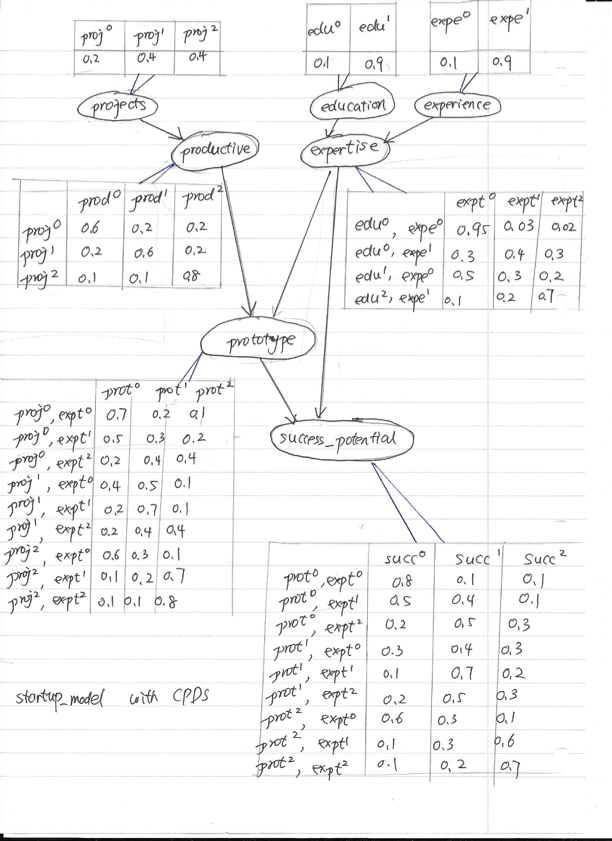 proj⁰ proj¹ proj²
0.2 0.4 0.4
edu⁰ edu¹
0.1 0.9
expe⁰ expe¹
0.1 0.9
projects
education
experience
productive
expertise
prod⁰ prod¹ prod²
proj⁰ 0.6 0.2 0.2
proj¹ 0.2 0.6 0.2
proj² 0.1 0.1 0.8
expt⁰ expt¹ expt²
edu⁰, expe⁰ 0.95 0.03 0.02
edu⁰, expe¹ 0.3 0.4 0.3
edu¹, expe⁰ 0.5 0.3 0.2
edu², expe¹ 0.1 0.2 0.7
prototype
success_potential
prot⁰ prot¹ prot²
proj⁰, expt⁰ 0.7 0.2 0.1
proj⁰, expt¹ 0.5 0.3 0.2
proj⁰, expt² 0.2 0.4 0.4
proj¹, expt⁰ 0.4 0.5 0.1
proj¹, expt¹ 0.2 0.7 0.1
proj¹, expt² 0.2 0.4 0.4
proj², expt⁰ 0.6 0.3 0.1
proj², expt¹ 0.1 0.2 0.7
proj², expt² 0.1 0.1 0.8
succ⁰ succ¹ succ²
prot⁰, expt⁰ 0.8 0.1 0.1
prot⁰, expt¹ 0.5 0.4 0.1
prot⁰, expt² 0.2 0.5 0.3
prot¹, expt⁰ 0.3 0.4 0.3
prot¹, expt¹ 0.1 0.7 0.2
prot¹, expt² 0.2 0.5 0.3
prot², expt⁰ 0.6 0.3 0.1
prot², expt¹ 0.1 0.3 0.6
prot², expt² 0.1 0.2 0.7
startup_model with CPDS